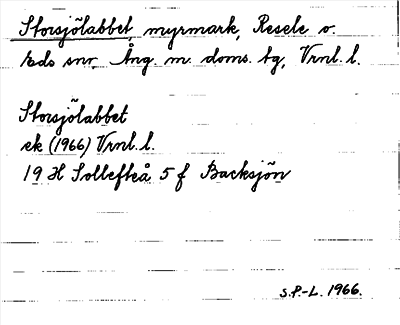 Storsjölabbet, myrmark, Resele o.
Eds snr, Ång. m. doms. tg, Vrnl. l.
Storsjölabbet
ek (1966) Vrnl. l.
19 H Sollefteå 5 f Backsjön
S.P.-L. 1966.